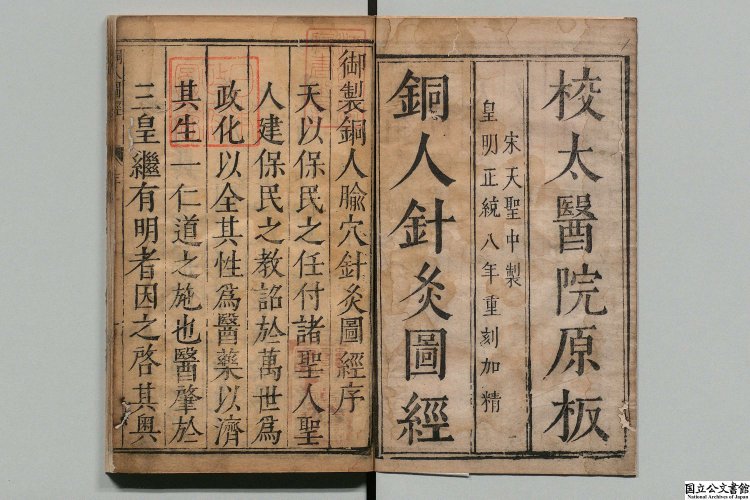 校太醫院原板
宋天聖中製
皇明正統八年重刻加精
銅人針灸圖經
御製銅人腧穴針灸圖經序
天以保民之任付諸聖人聖
人建保民之教詔於萬世爲
政化以全其性爲醫藥以濟
其生一仁道之施也醫肇於
三皇繼有明者因之啓其奧
国立公文書館
National Archives of Japan